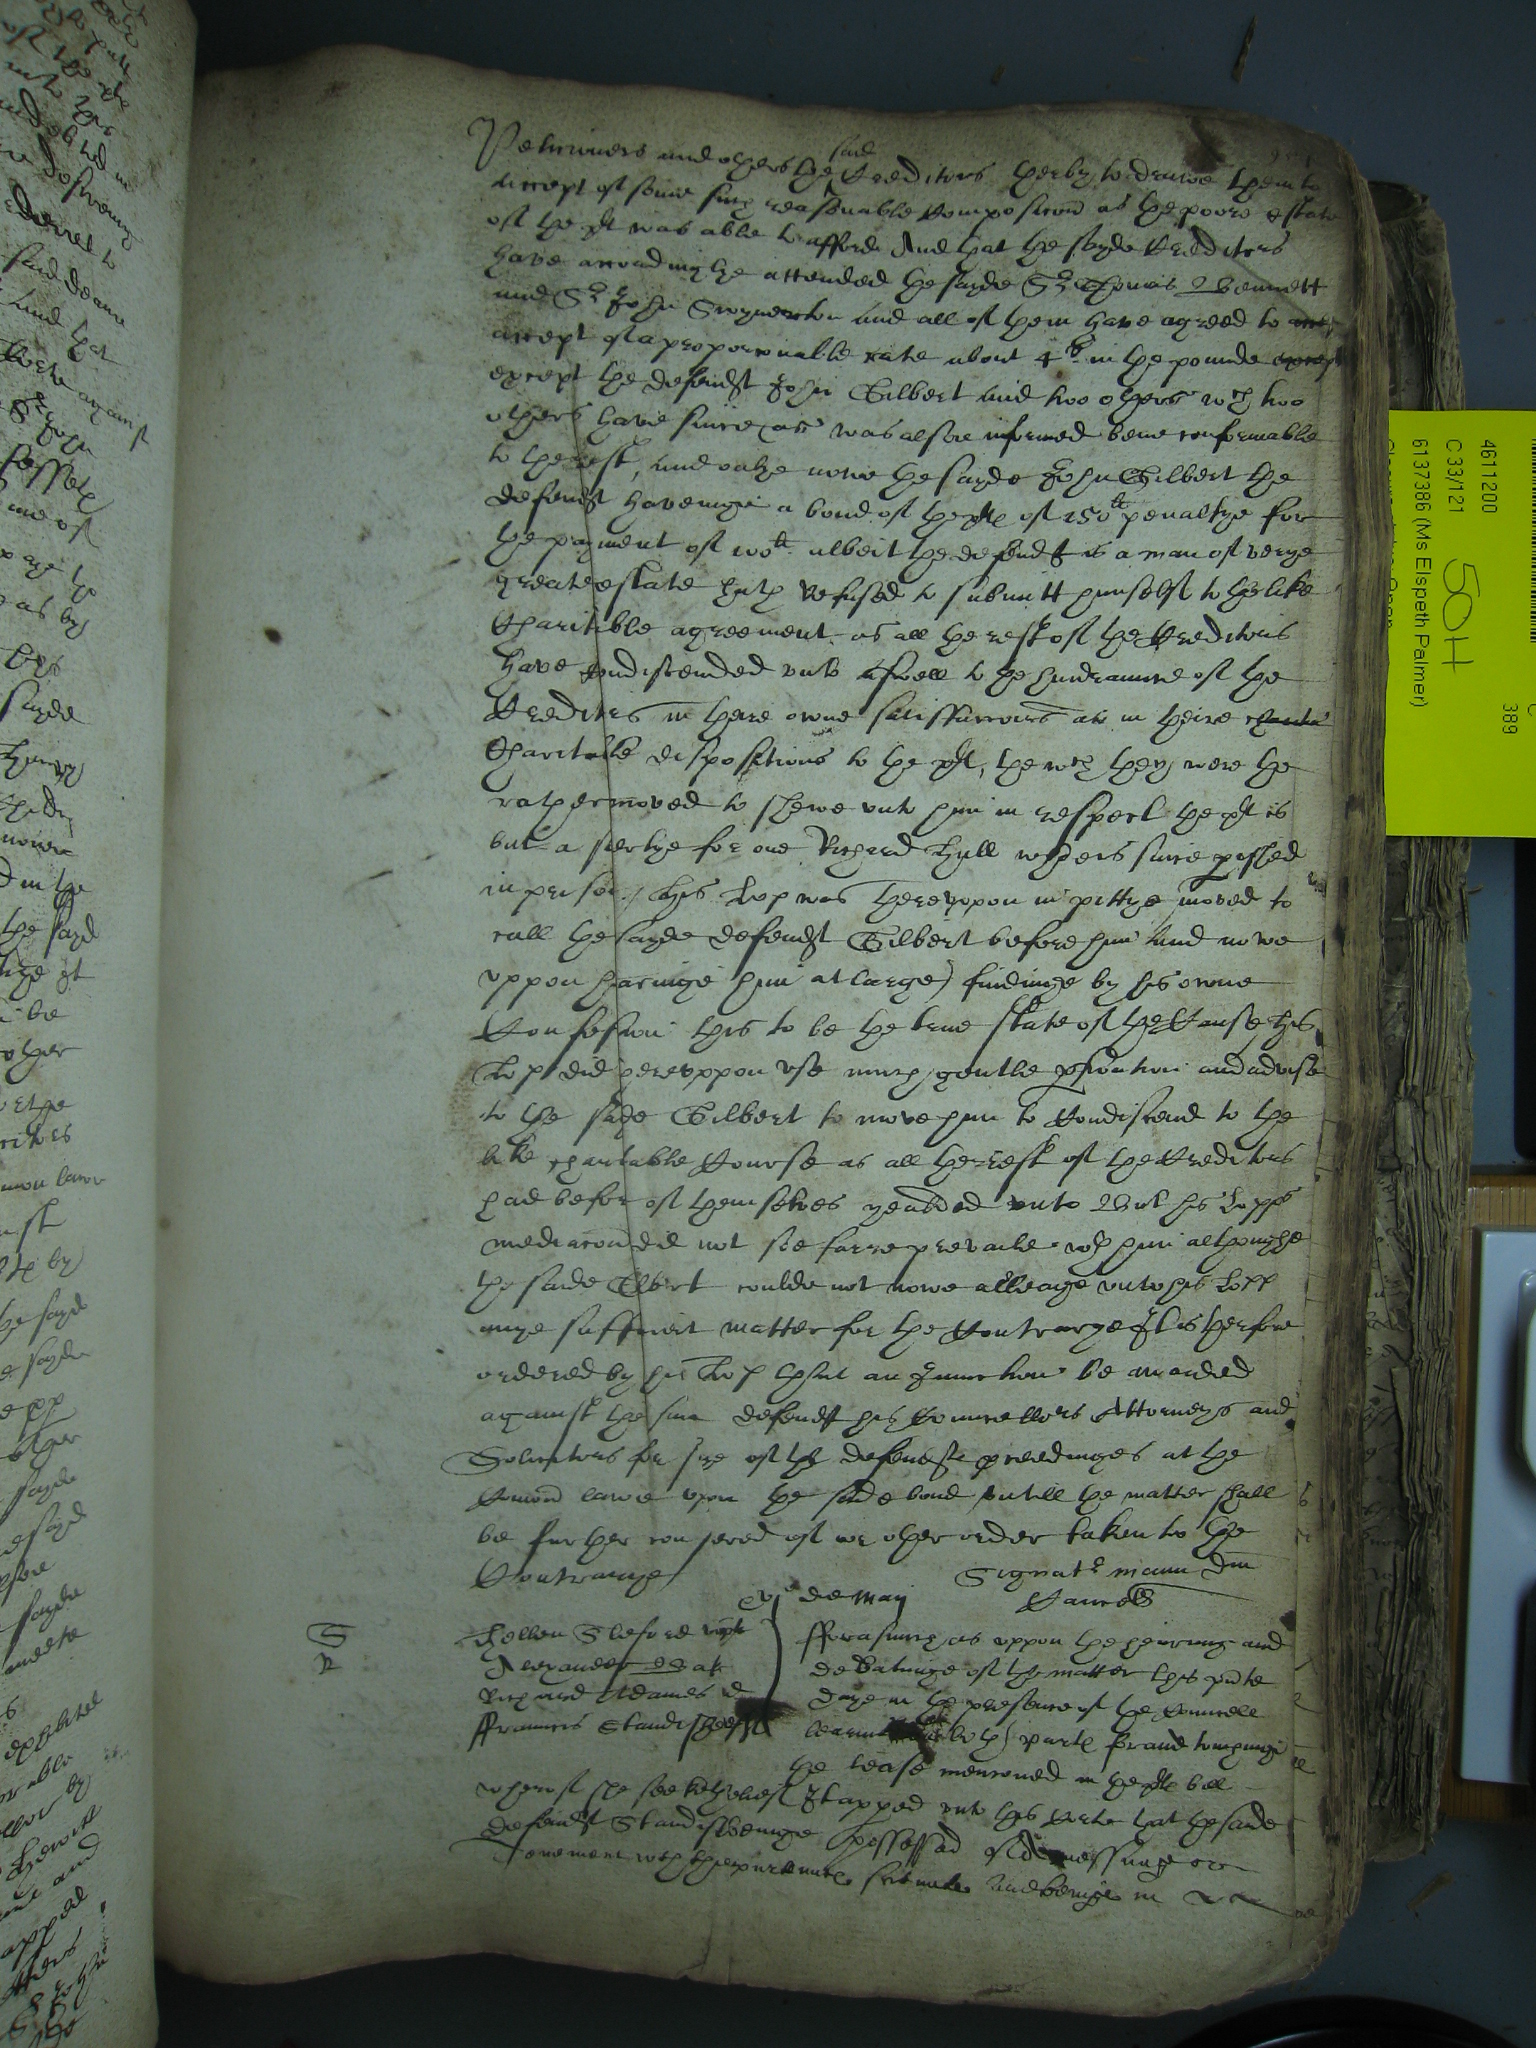 Petitioners and others the said Creditors therby to drawe them to
accept of some such reasonable Composicion as the poore estate
of the plt was able to afford And that the sayde Creditors
have accordingly attended the sayde Sr Thomas Bennett
and Sr John Swynerton and all of them have agreed to
accept of a proporcionable rate about 4s in the pounde
except the defendt John Gilbert and two others wch two
others have since (as was alsoe informed) bene conformable
to the rest, and onlye nowe the sayde John Gilbert the
defendt haveinge a bond of the plts of 150li penaltye for
the payment of 100li albeit the defendt is a man of verye
greate estate hath refused to submitt himself to the like
Charitible agreement as all the rest of the Creditors
have Condiscended unto aswell to the hinderaunce of the
Creditors in theire owne satisfaccions as in theire
Charitable dispositions to the plt, the wch they were the
rather moved to shewe unto him in respect the plt is
but a suertye for one Richard Hull whoe is since perished
in prison, his Lop was thereuppon in pittye moved to
call the sayde defendt Gilbert before him And nowe
uppon hearinge him at large, findinge by his owne
Confession this to be the true state of the Cause, his
Lop did hereuppon use much gentle perswation and advise
to the sayde Gilbert to move him to Condiscend to the
like charitable Course as all the rest of the Creditors
had before of themselves yealded unto But his Lopps
mediacon did not soe farre prevaile wth him althoughe
the saide Gilbert coulde not nowe alleage unto his Lopp
anye sufficient matter for the Contrarye It is therfore
ordered by his Lop that an Iniunction be awarded
against the same defendt his Councellors Attorneys and
Solicitors for staye of the defendts proceedinges at the
Comon lawe upon the saide bond untill the matter shall
be further considered of or other order taken to the
Contrarye
Signatr manu Dni
Cancell
de Maij
Hellen Sleford
Alexander
Richard Adames
Frauncis Standish defts
Forasmuch as uppon the hearing and
debatinge of the matter this pnte
daye in the presence of the Councell
learned both partes for and touchinge
the lease mencioned in the plts bill
wherof she seeketh releif It appeared unto this Corte that the saide
defendt Standish beinge possessed of the messuage or
Tenement wth thappurtenances scituate And beinge in
4611200
C 33/121
6137386 (Ms Elspeth Palmer)
389